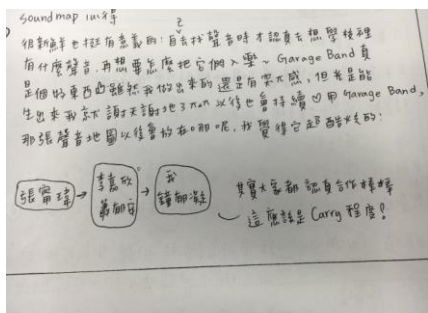 Soundmap 心得
很新鮮也挺有意義的!自己去找聲音時才認真去想學校裡
有什麼聲音,再想要怎麼把它們入樂~Garage Band真
是個好東西QQ雖然我做出來的還是有突兀感,但光是能
生出來我就謝天謝地了π_π以後也會持續♡用Garage Band,
那張聲音地圖以後會放在哪呢,我覺得它超酷炫的!
張甯瑋
李嘉欣
郁安
我
鐘郁凝
其實大家都認真合作棒棒
這應該是Carry程度!